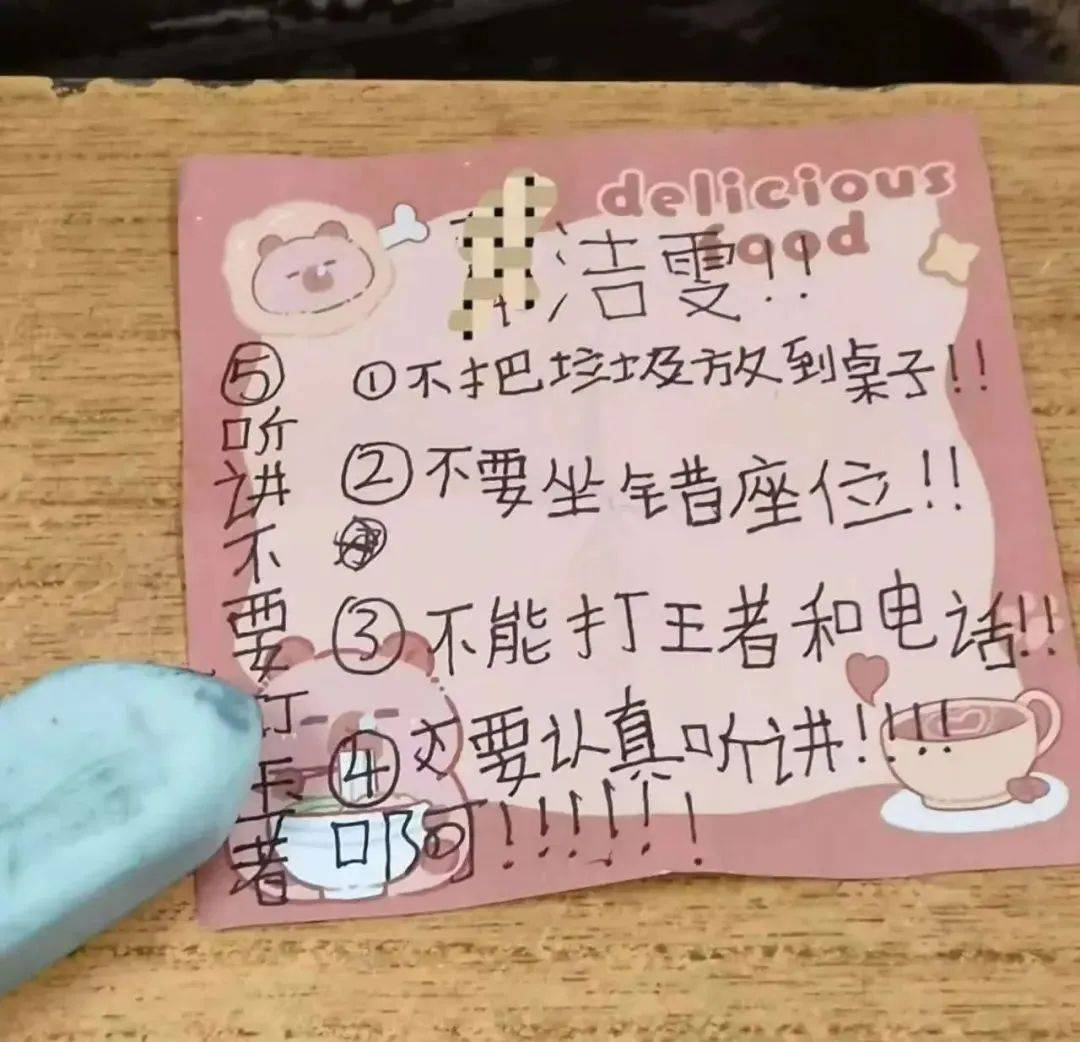 delicious
food
洁雯!!
①不把垃圾放到桌子!!
②不要坐错座位!!
③不能打王者和电话!!
④要认真听讲!!!!
⑤听讲不要者
啊!!!!!!!